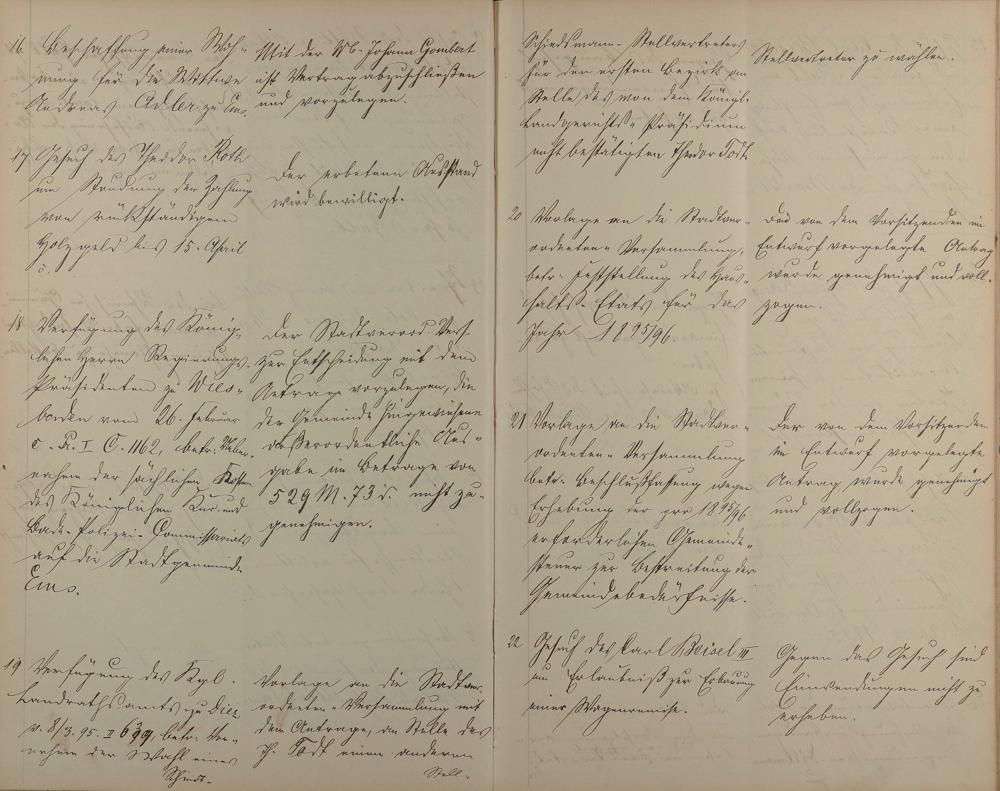 16 Beschaffung einer Woh-
nung für die Wittwe
Andreas Adler zu Ems.
Mit der Wb. Johann Gombert
ist Vertrag abzuschließen
und vorzulegen.
17 Gesuch des Theodor Roth
um Stundung der Zahlung
von rückständigem
Holzgeld bis 15. April
c.
Der erbetene Ausstand
wird bewilligt.
18 Verfügung des König-
lichen Herrn Regierungs-
Präsidenten zu Wies-
baden vom 26. Februar
c. Pr. I C. 1162, betr. Ueber-
nahme der sächlichen Kosten
des Königlichen Kur- und
Bade-Polizei-Commissariats
auf die Stadtgemeinde
Ems.
Der Stadtverord. Vers.
zur Entscheidung mit dem
Antrage vorzulegen, die
der Gemeinde hingewiesene
außerordentliche Aus-
gabe im Betrage von
529 M. 73 d. nicht zu
genehmigen.
19 Verfügung des Kgl.
Landrathsamts zu Diez
v. 8/3. 95. II 639, betr. Vor-
nahme der Wahl eines
Schieds-
Vorlage an die Stadtver-
ordneten-Versammlung mit
dem Antrage, an Stelle des
Th. Todt einen anderen
Stell-
Schiedsmann-Stellvertreters
für den ersten Bezirk an
Stelle des von dem Königl.
Landgerichts-Präsidium
nicht bestätigten Theodor Todt.
Stellvertreter zu wählen.
20 Vorlage an die Stadtver-
ordneten-Versammlung,
betr. Feststellung des Haus-
halts-Etats für das
Jahr 1895/96.
Der von dem Vorsitzenden im
Entwurf vorgelegte Antrag
wurde genehmigt und voll-
zogen.
21 Vorlage an die Stadtver-
ordneten-Versammlung
betr. Beschlußfassung wegen
Erhebung der pro 1895/96
erforderlichen Gemeinde-
steuer zur Bestreitung der
Gemeindebedürfnisse.
Der von dem Vorsitzenden
im Entwurf vorgelegte
Antrag wurde genehmigt
und vollzogen.
22 Gesuch des Carl Beisel III
um Erlaubniß zur Erbauung
einer Wagenremise.
Gegen das Gesuch sind
Einwendungen nicht zu
erheben.